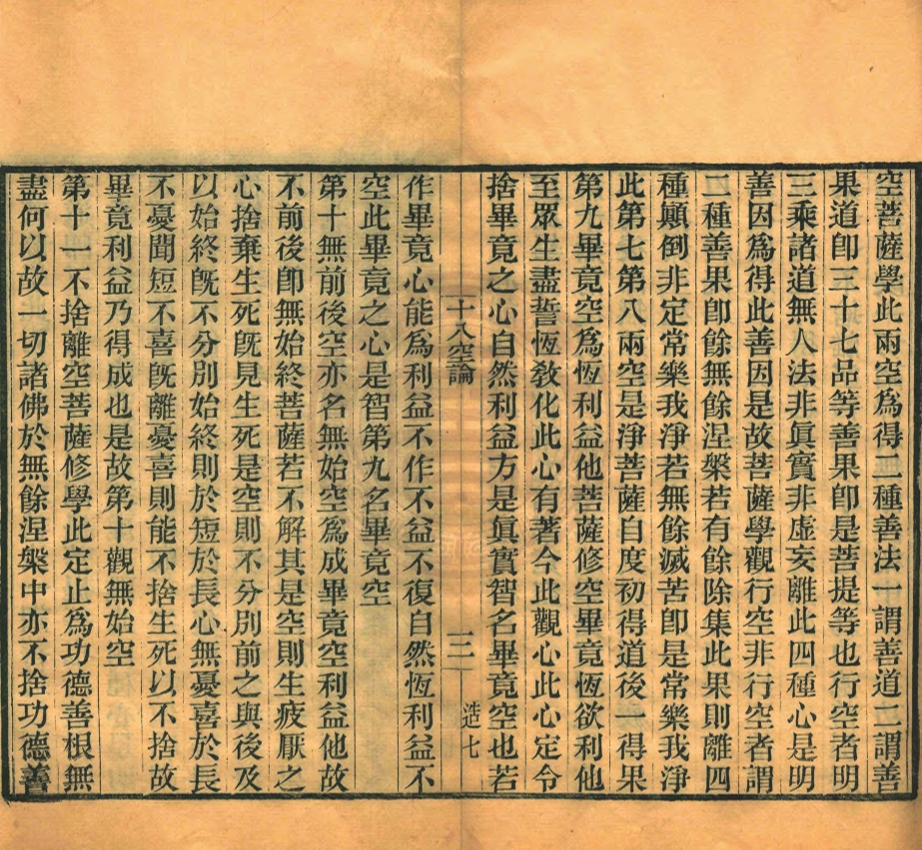 空菩薩學此兩空爲得二種善法一謂善道二謂善
果道卽三十七品等善果卽是菩提等也行空者明
三乘諸道無人法非眞實非虛妄離此四種心是明
善因爲得此善因是故菩薩學觀行空非行空者謂
二種善果卽餘無餘涅槃若有餘除集此果則離四
種顚倒非定常樂我淨若無餘滅苦卽是常樂我淨
此第七第八兩空是淨菩薩自度初得道後一得果
第九畢竟空爲恆利益他菩薩修空畢竟恆欲利他
至眾生盡誓恆敎化此心有著今此觀心此心定令
捨畢竟之心自然利益方是眞實智名畢竟空也若
十八空論 三 造七
作畢竟心能爲利益不作不益不復自然恆利益不
空此畢竟之心是智第九名畢竟空
第十無前後空亦名無始空爲成畢竟空利益他故
不前後卽無始終菩薩若不解其是空則生疲厭之
心捨棄生死旣見生死是空則不分別前之與後及
以始終旣不分別始終則於短於長心無憂喜於長
不憂聞短不喜旣離憂喜則能不捨生死以不捨故
畢竟利益乃得成也是故第十觀無始空
第十一不捨離空菩薩修學此定止爲功德善根無
盡何以故一切諸佛於無餘涅槃中亦不捨功德善